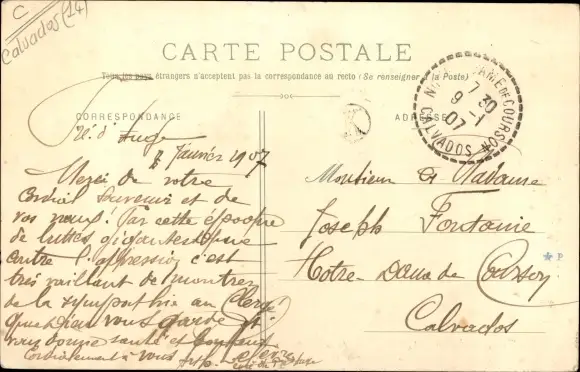 C
Calvados (14)
CARTE POSTALE
Tous les pays étrangers n'acceptent pas la correspondance au recto (Se renseigner à la Poste)
CORRESPONDANCE
ADRESSE
DAME DE COURSON
7 30
9 - 1
07
CALVADOS
Janvier 1907
Merci de votre
Cordial Souvenir et de
vos vœux! Par cette époque
de luttes gigantesques
contre l'oppression c'est
très vaillant de montrer
de la sympathie au Clergé
que Dieu vous garde et
vous donne santé et bonheur
Cordialement à vous
Monsieur et Madame
Joseph Fontaine
Notre-Dame de Courson
Calvados